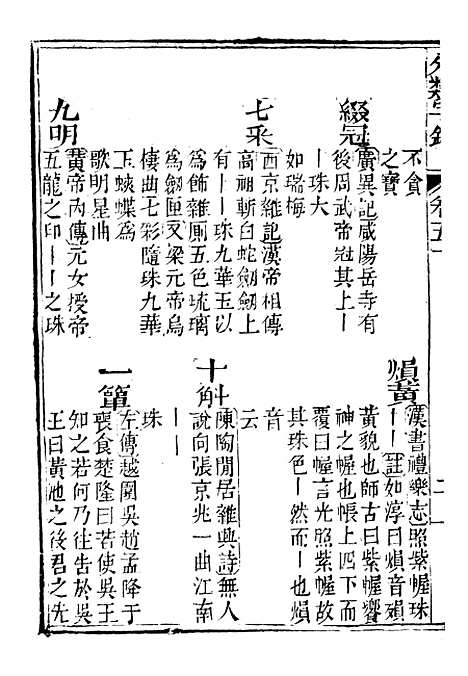 分類字錦
卷五
二
不貪
之寶
綴冠
廣異記咸陽岳寺有
後周武帝冠其上丨
丨珠大
如瑞梅
七采
西京雜記漢帝相傳
高祖斬白蛇劒劒上
有丨丨珠九華玉以
爲飾雜厠五色琉璃
爲劒匣又梁元帝烏
棲曲七彩隨珠九華
玉蛺蝶爲
歌明星曲
九明
黃帝內傳元女授帝
五龍之印丨丨之珠
熉黃
漢書禮樂志照紫幄珠
丨丨註如淳曰熉音殞
黃貌也師古曰紫幄饗
神之幄也帳上四下而
覆曰幄言光照紫幄故
其珠色丨然而丨也熉
音
云
十斛
陳陶閒居雜典詩無人
說向張京兆一曲江南
丨丨
珠
一簞
左傳越圍吳趙孟降于
喪食楚隆曰若使吳王
知之若何乃往告於吳
王曰黃池之後君之先